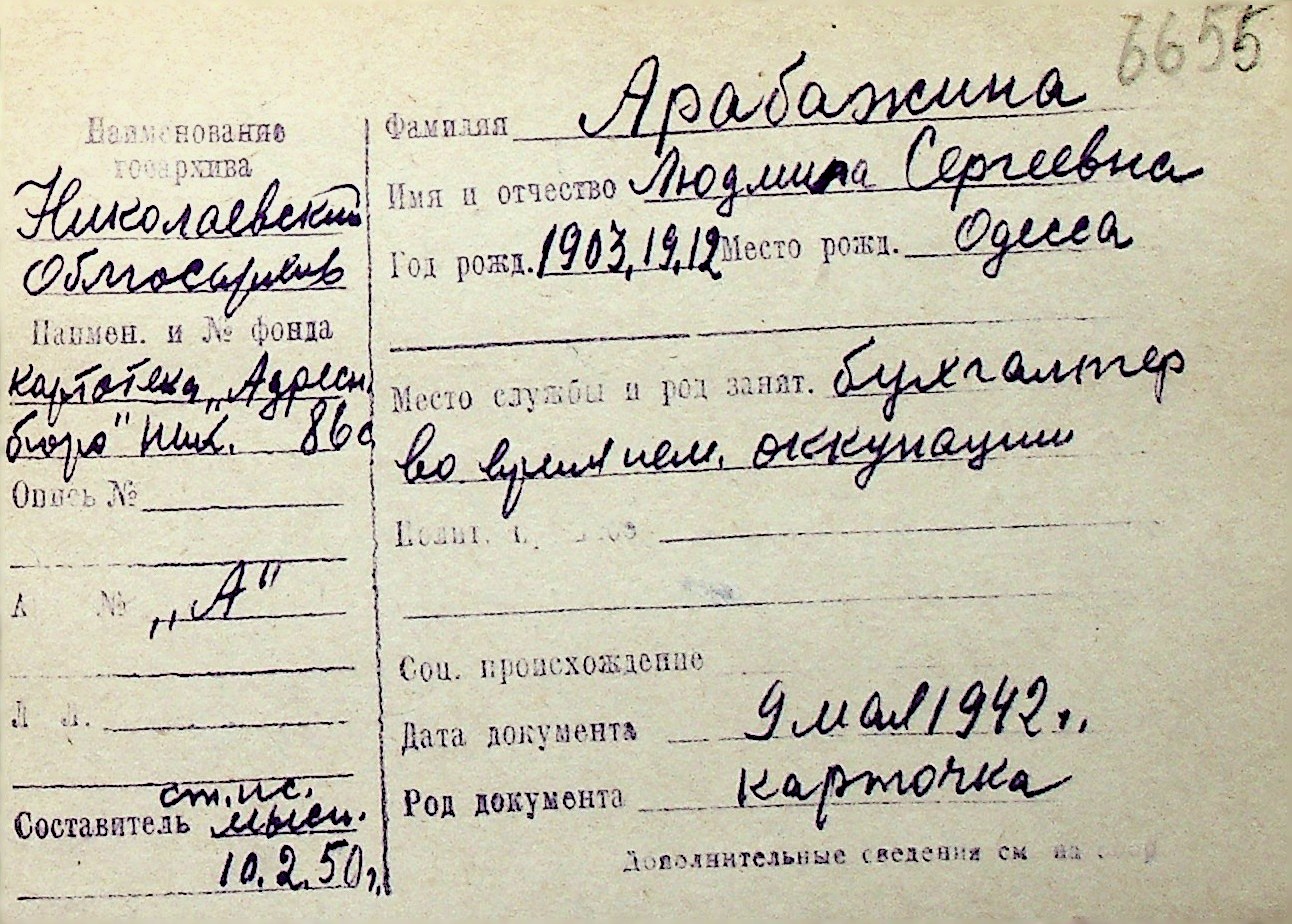 6655
Наименование
госархива
Николаевский
Облгосархив
Наимен. и № фонда
картотека „Адресн.
бюро" Ник. 86с
Опись №
№ „А"
Л Л.
ст. ис.
Составитель
10.2.50 г.
Фамилия Арабажина
Имя и отчество Людмила Сергеевна
Год рожд. 1903, 19, 12 Место рожд. Одесса
Место службы и род занят. бухгалтер
во время нем. оккупации
Полит.
Соц. происхождение
Дата документа 9 мая 1942 г.
Род документа карточка
Дополнительные сведения см на